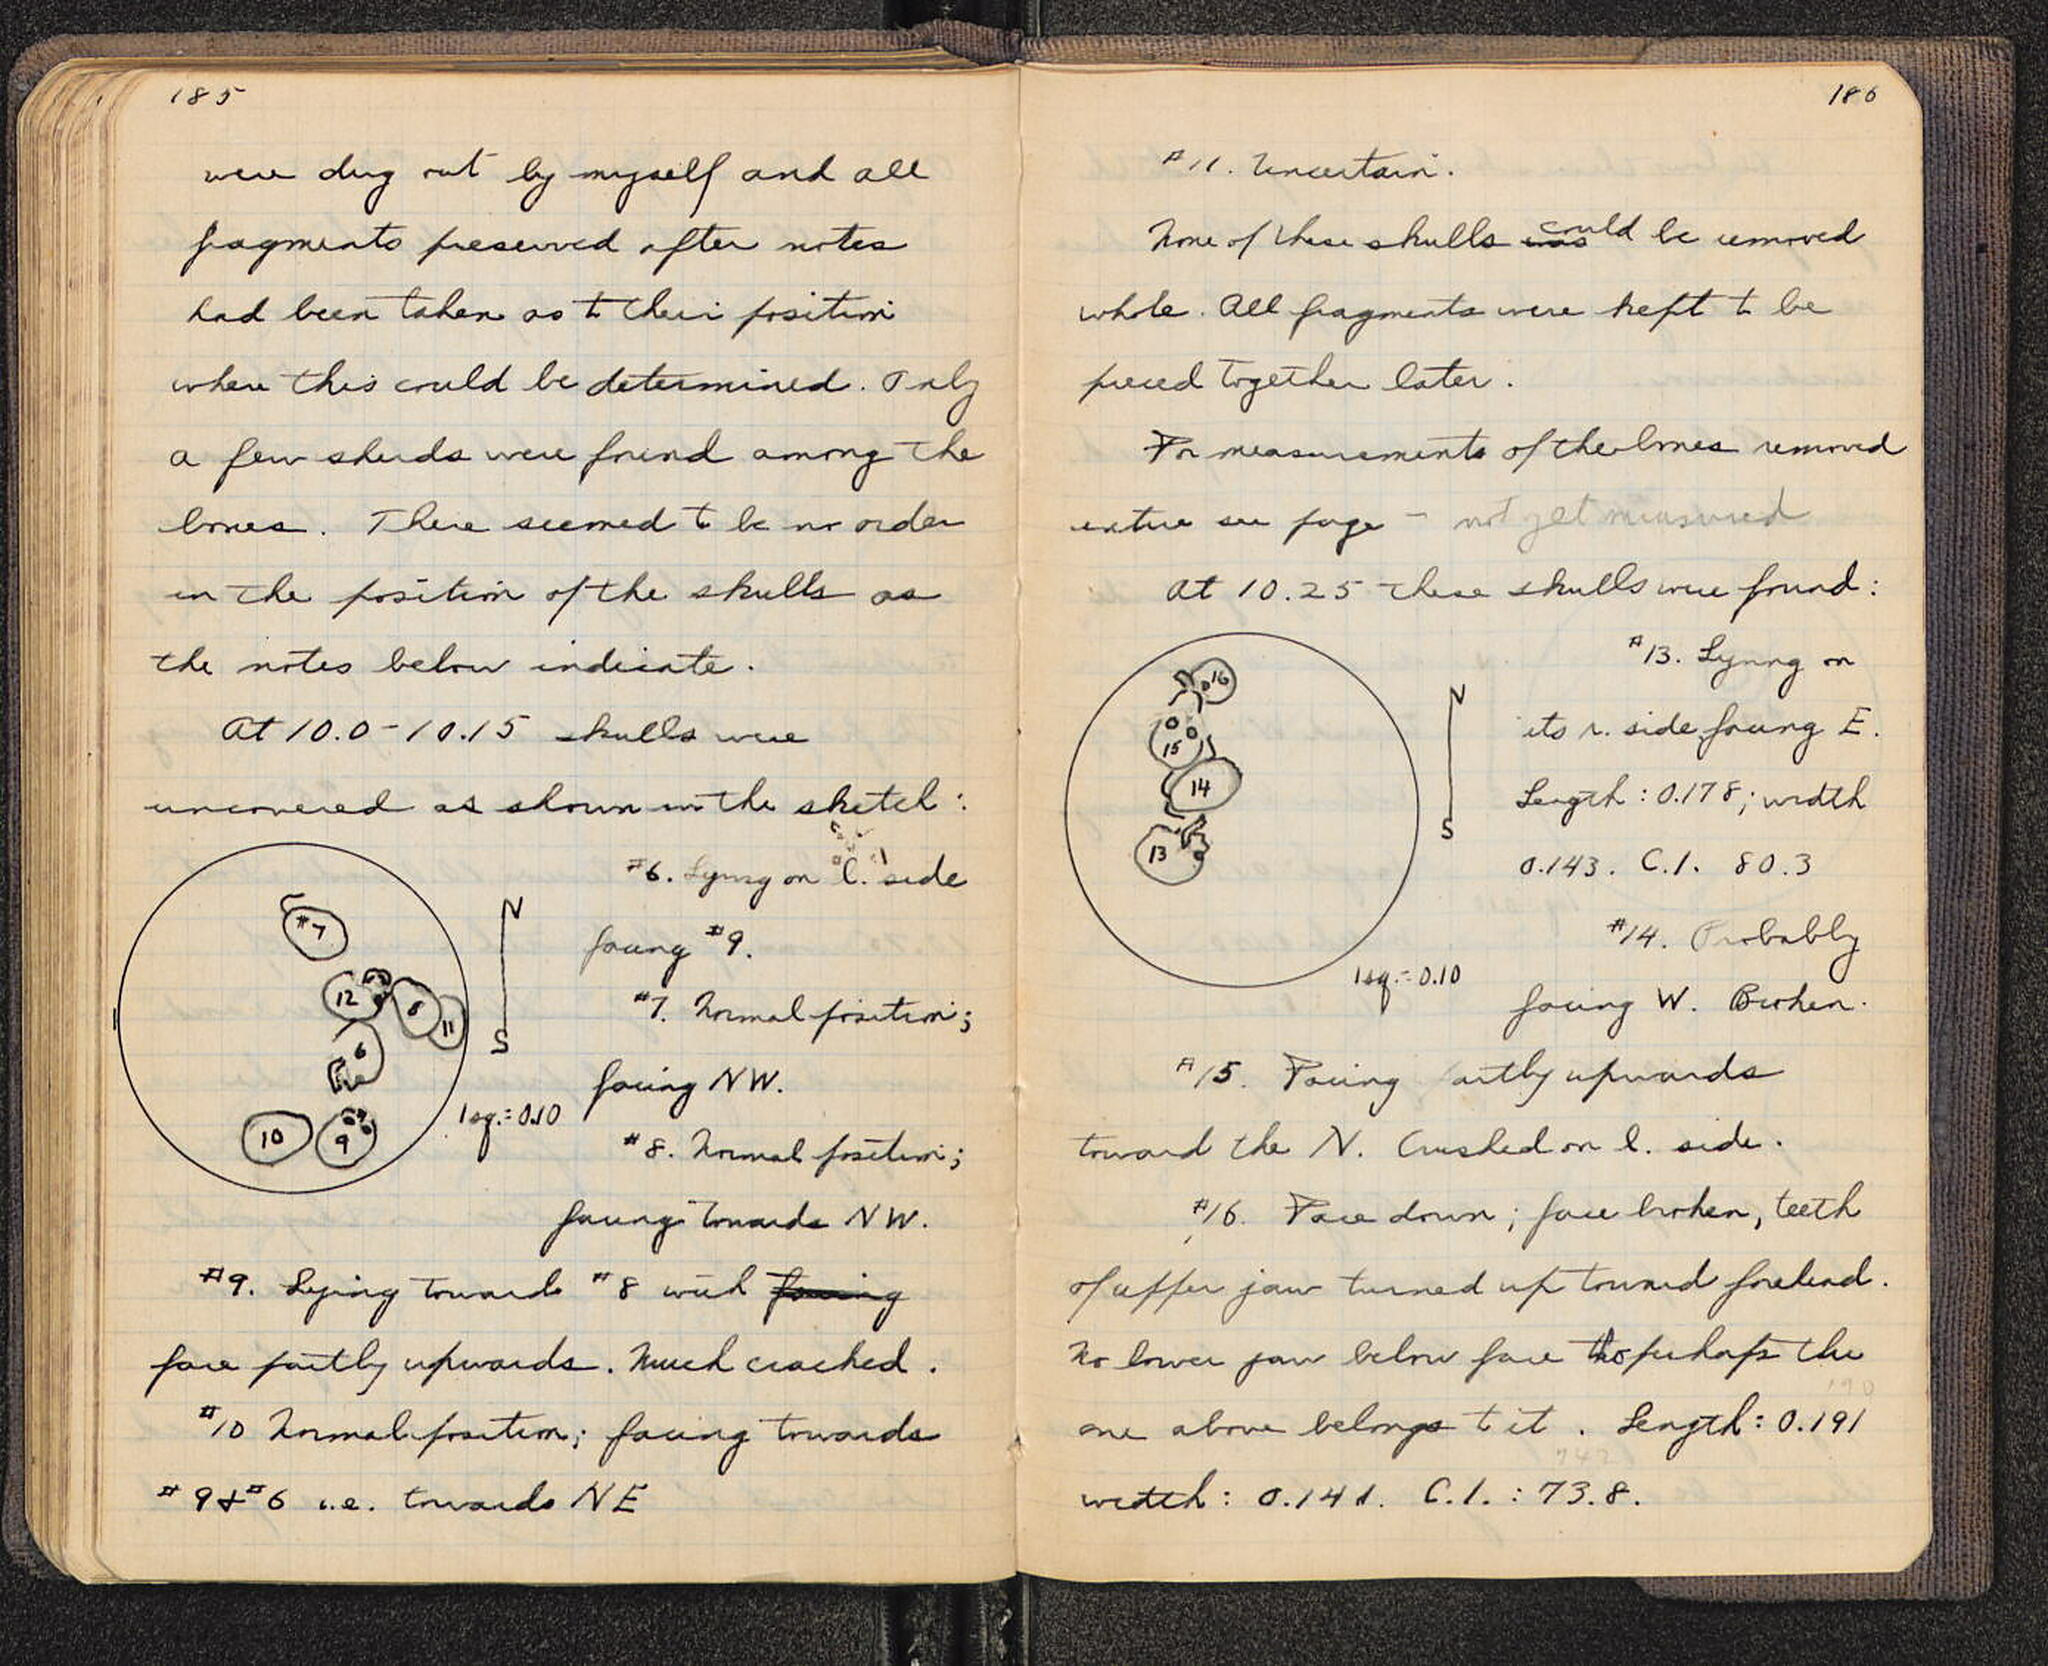 185
were dug out by myself and all
fragments preserved after notes
had been taken as to their position
where this could be determined. Only
a few sherds were found among the
bones. There seemed to be no order
in the position of the skulls as
the notes below indicate.
At 10.0-10.15 skulls were
uncovered as shown in the sketch:
#7
12
8
11
6
10
9
N
S
1 sq. = 0.10
#6. Lying on l. side
facing #9.
#7. Normal position;
facing NW.
#8. Normal position;
facing towards NW.
#9. Lying towards #8 with facing
face partly upwards. Much cracked.
#10 Normal position; facing towards
#9 & #6 i.e. towards NE
186
#11. Uncertain.
None of these skulls was could be removed
whole. All fragments were kept to be
pieced together later.
For measurements of the bones removed
entire see page - not yet measured
At 10.25 these skulls were found:
16
15
14
13
N
S
1 sq. = 0.10
#13. Lying on
its r. side facing E.
Length: 0.178; width
0.143. C.I. 80.3
#14. Probably
facing W. Broken.
#15. Facing partly upwards
toward the N. Crushed on l. side.
#16. Face down; face broken, teeth
of upper jaw turned up toward forehead.
No lower jaw below face tho perhaps the
190
one above belongs to it. Length: 0.191
742
width: 0.141. C.I.: 73.8.